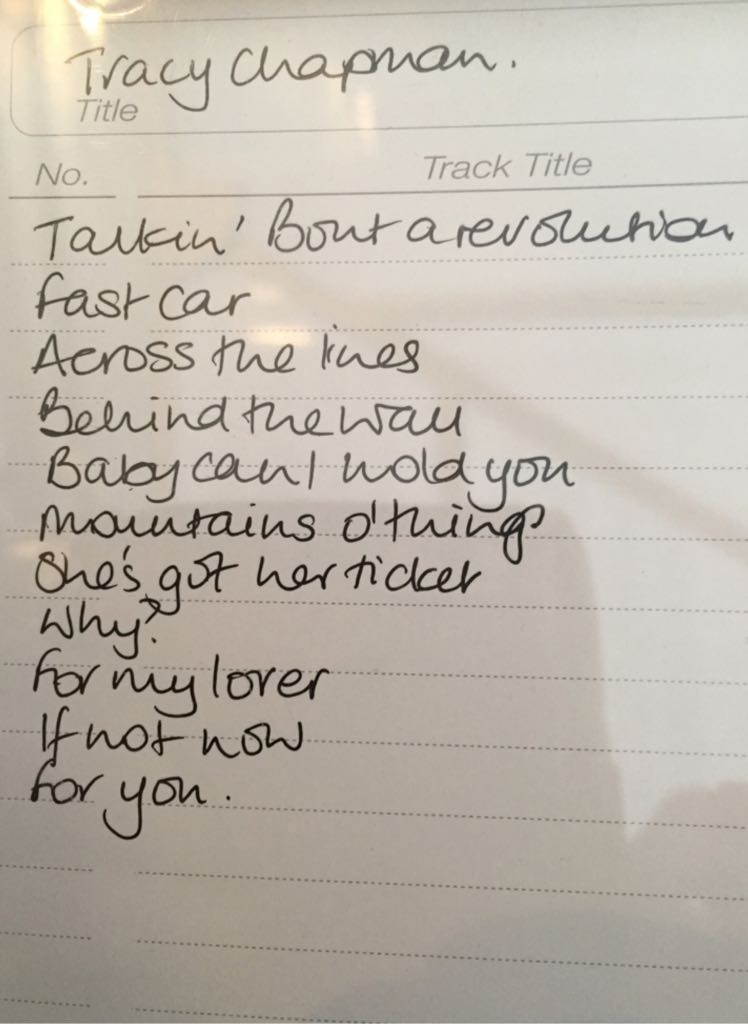 Tracy Chapman.
Title
No. Track Title
Talkin' Bout a revolution
fast car
Across the lines
Behind the wall
Baby can I hold you
Mountains o' things
She's got her ticket
Why?
for my lover
If not now
for you.